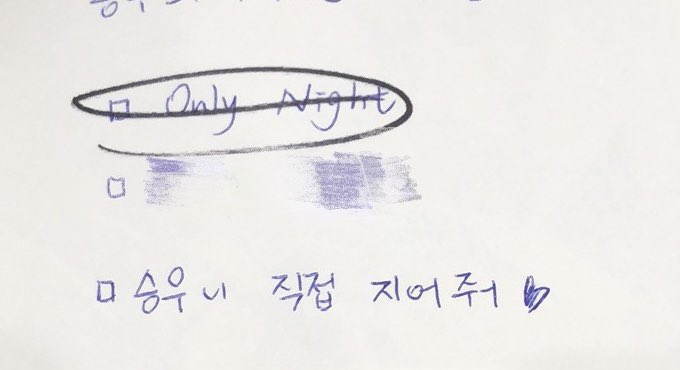 □ Only Night
□
□ 승우니 직접 지어줘